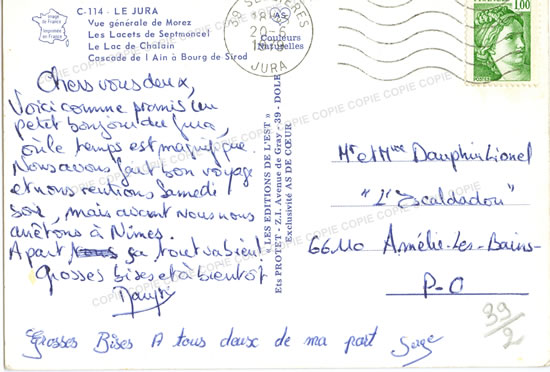 C-114 - LE JURA
Vue générale de Morez
Les Lacets de Septmoncel
Le Lac de Chalain
Cascade de l'Ain à Bourg de Sirod
Image de France
Imprimée en France
AS
Couleurs Naturelles
JURA
1,00
Chers vous deux,
Voici comme promis un
petit bonjour du Jura,
où le temps est magnifique.
Nous avons fait bon voyage
et nous rentrons Samedi
soir, mais avant nous nous
arrêtons à Nîmes.
A part ça tout va bien!
Grosses bises et à bientôt
Grosses Bises A tous deux de ma part Serge
« LES EDITIONS DE L'EST »
Ets PROTET - Z.I. Avenue de Gray - 39 - DOLE
Exclusivité AS DE CŒUR
Mr et Mme Dauphin Lionel
"L'Escaldadou"
66110 Amélie-Les-Bains-
P-O
39/2
COPIE COPIE COPIE COPIE COPIE COPIE